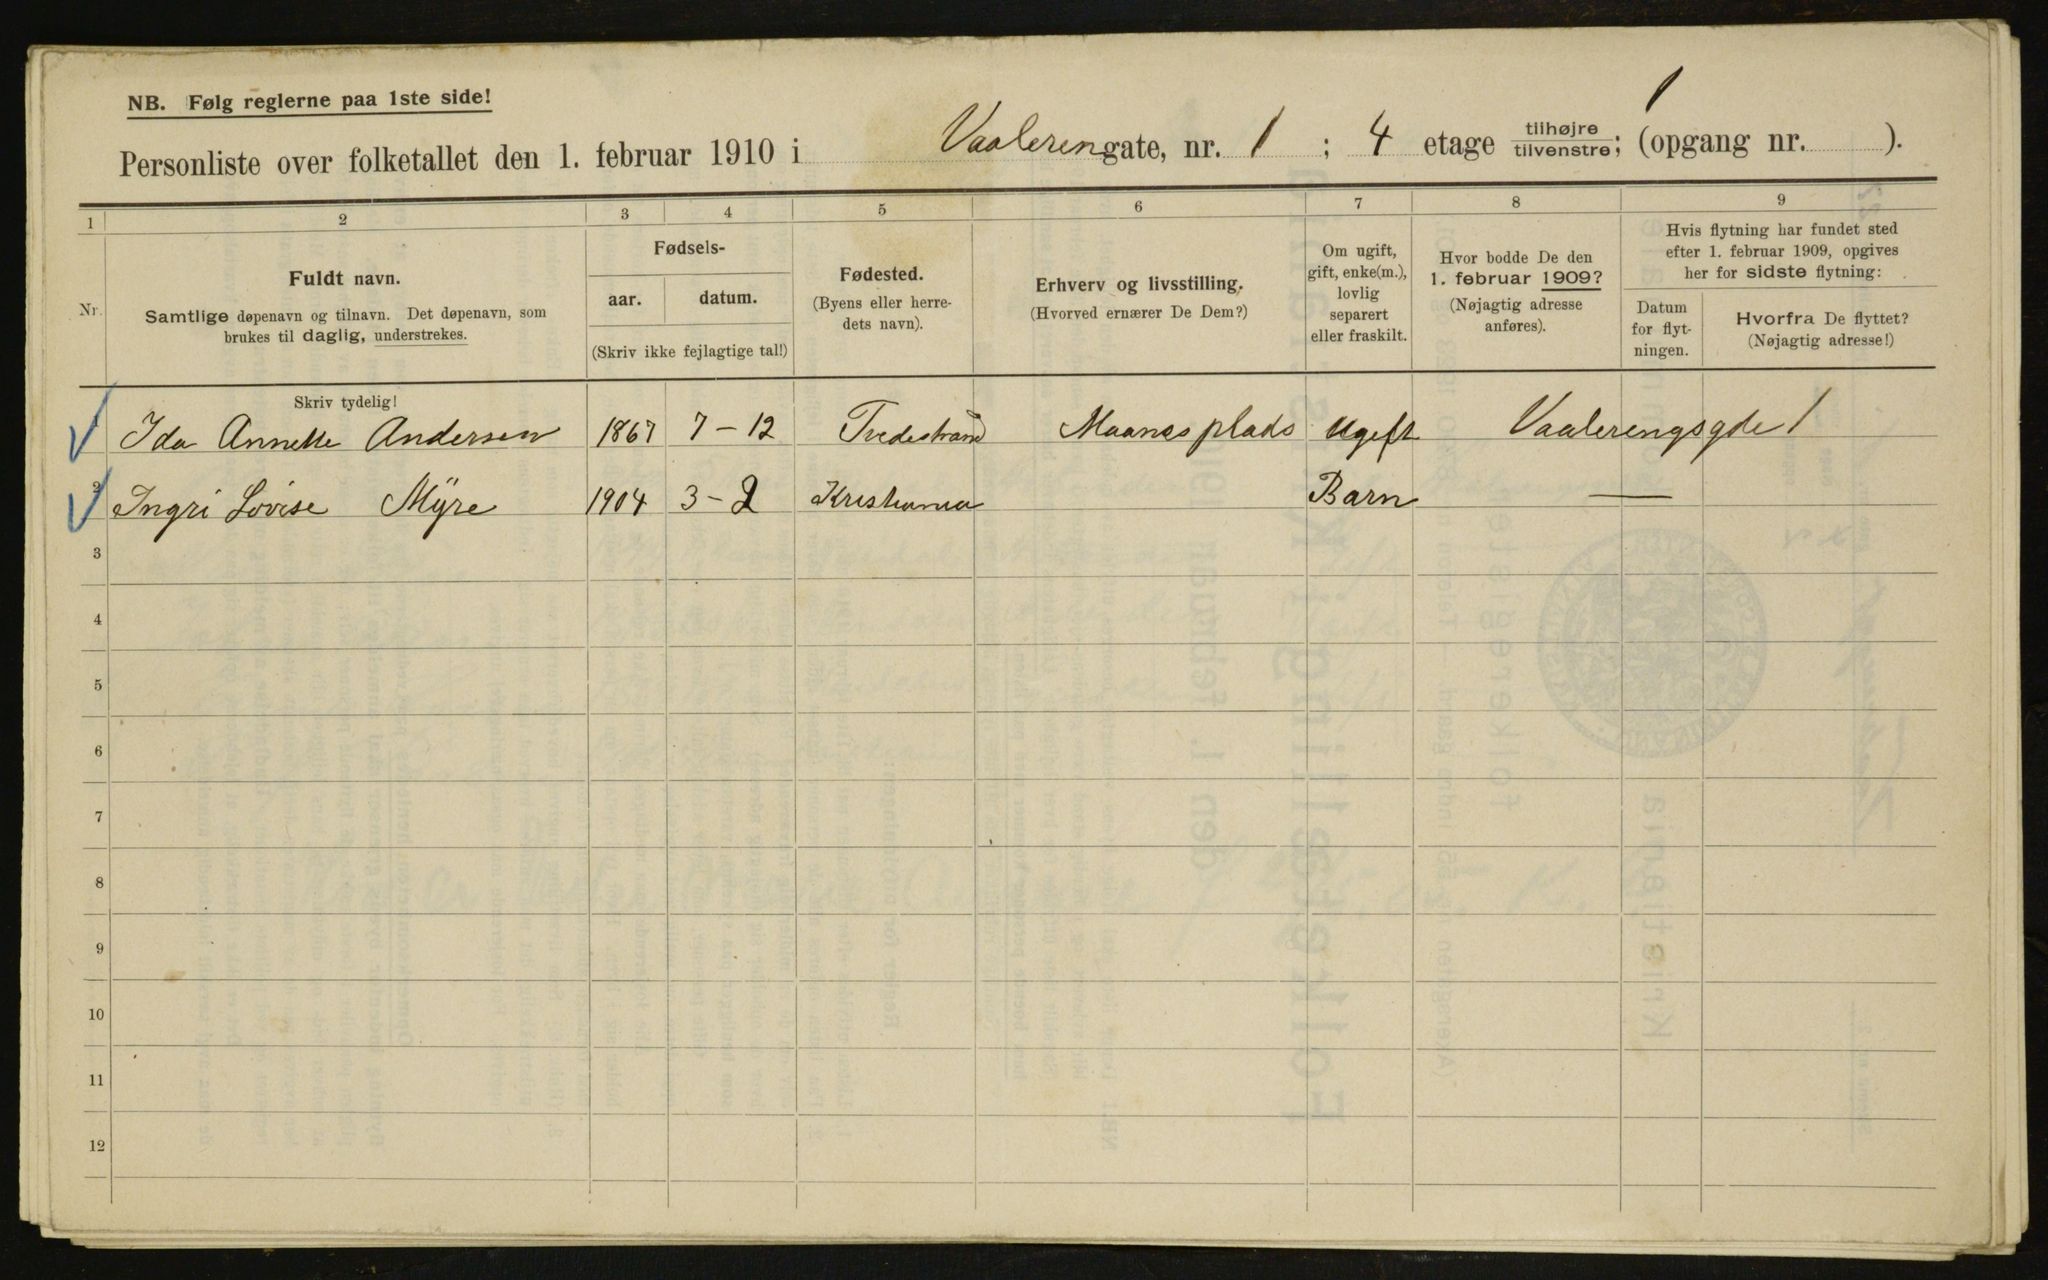 NB. Følg reglerne paa 1ste side!
1
Personliste over folketallet den 1. februar 1910 i Vaalerengate, nr. 1; 4 etage tilhøjre tilvenstre; (opgang nr. ).
1 2 3 4 5 6 7 8 9
Nr.
Fuldt navn.
Samtlige døpenavn og tilnavn. Det døpenavn, som
brukes til daglig, understrekes.
Fødsels-
aar. datum.
(Skriv ikke fejlagtige tal!)
Fødested.
(Byens eller herre-
dets navn).
Erhverv og livsstilling.
(Hvorved ernærer De Dem?)
Om ugift,
gift, enke(m.),
lovlig
separert
eller fraskilt.
Hvor bodde De den
1. februar 1909?
(Nøjagtig adresse
anføres).
Hvis flytning har fundet sted
efter 1. februar 1909, opgives
her for sidste flytning:
Datum
for flyt-
ningen.
Hvorfra De flyttet?
(Nøjagtig adresse!)
Skriv tydelig!
Ida Annette Andersen 1867 7-12 Tvedestrand Maanesplads ugift Vaalerengsgde 1
2 Ingri Lovise Mÿre 1904 3-2 Kristiania Barn —
3
4
5
6
7
8
9
10
11
12